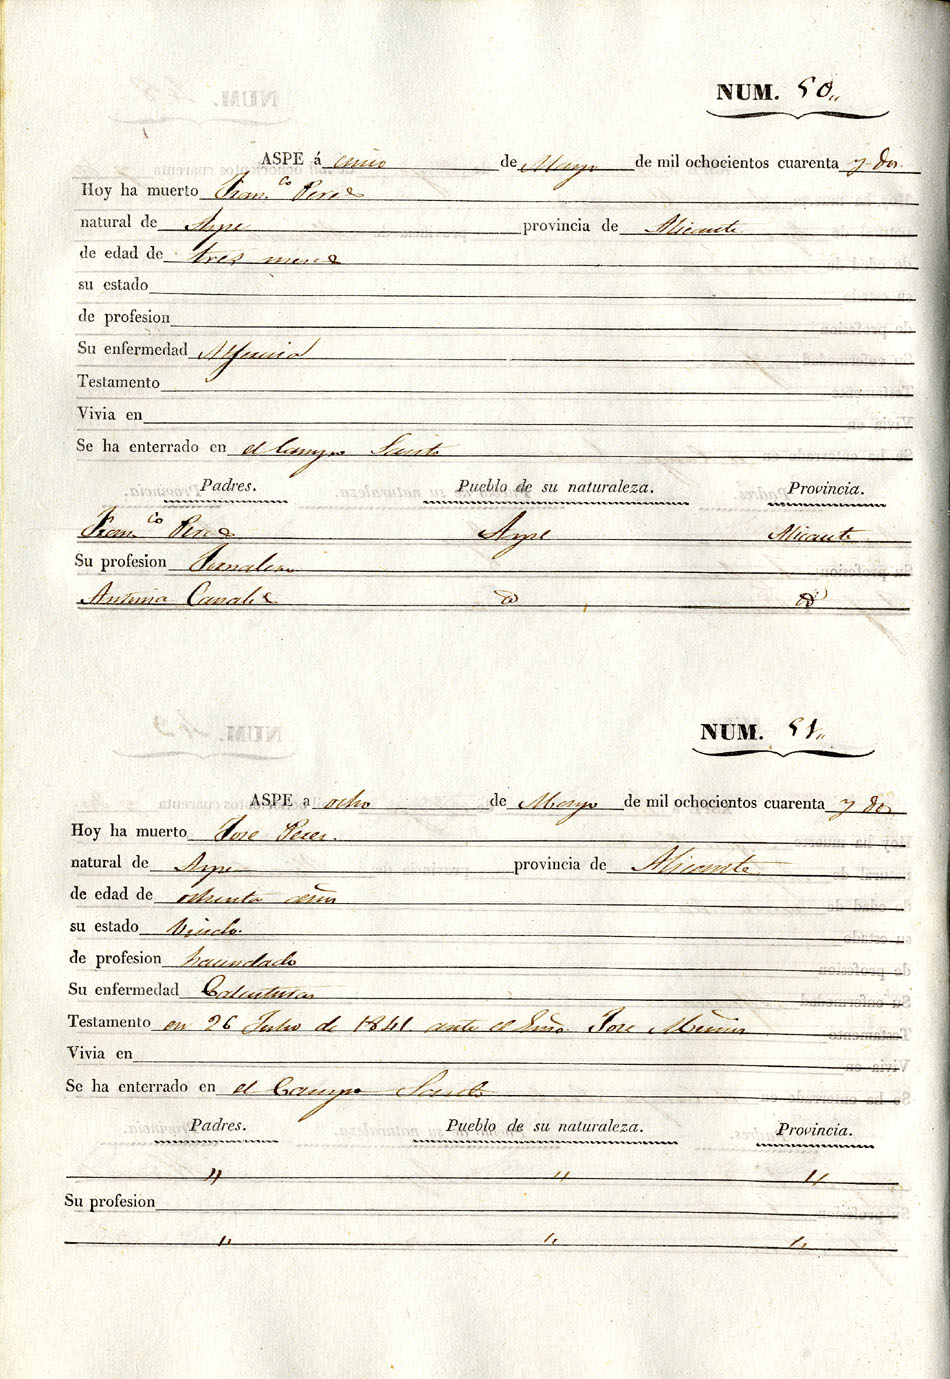 NUM. 50,,
ASPE á cinco de Mayo de mil ochocientos cuarenta y dos.
Hoy ha muerto Fran.co Perez
natural de Aspe provincia de Alicante
de edad de tres meses
su estado
de profesion
Su enfermedad Alferecia
Testamento
Vivia en
Se ha enterrado en el Campo Santo
Padres. Pueblo de su naturaleza. Provincia.
Fran.co Perez Aspe Alicante
Su profesion Jornalero
Antonia Canales
NUM. 51,,
ASPE a ocho de Mayo de mil ochocientos cuarenta y dos
Hoy ha muerto Jose Perez.
natural de Aspe provincia de Alicante
de edad de ochenta años
su estado Viudo.
de profesion hacendado
Su enfermedad Calenturas
Testamento en 26 Julio de 1841. ante el Jose
Vivia en
Se ha enterrado en el Campo Santo
Padres. Pueblo de su naturaleza. Provincia.
" " "
Su profesion
" " "